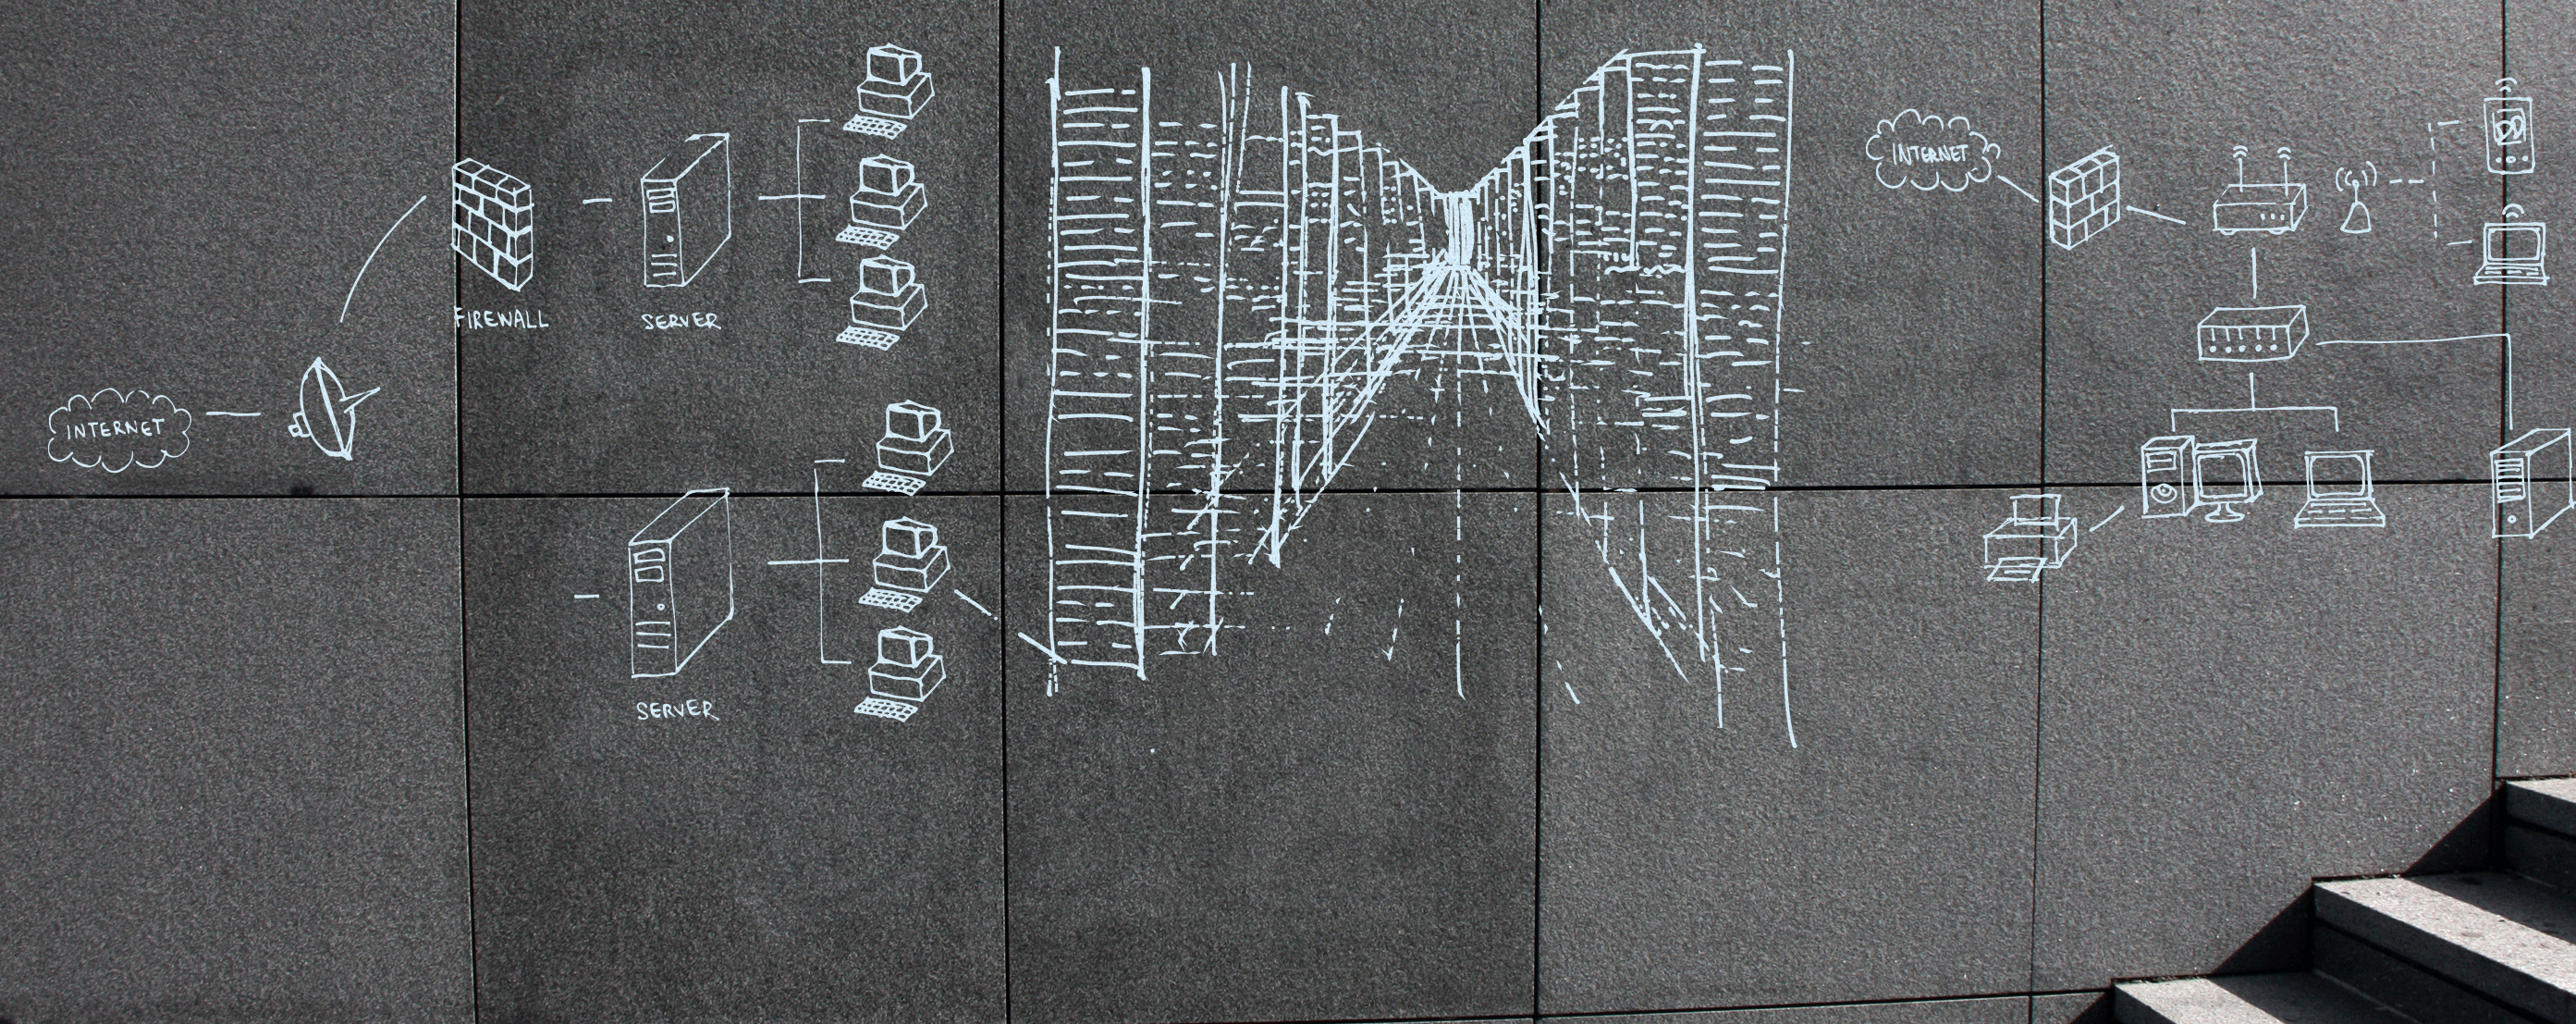 INTERNET
FIREWALL
SERVER
SERVER
INTERNET